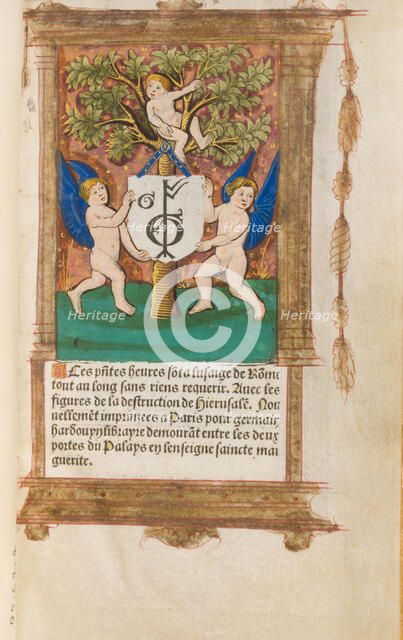 Ces pñtes heures sõt a lusaige de Rõme
tout au long sans riens requerir. Avec les
figures de la destruction de Hierusalē. Nou
vellemēt imprimees a Paris pour germaiɳ
hardouyɳ librayre demourāt entre les deux
portes du Palays eɳ lenseigne saincte mar
guerite.